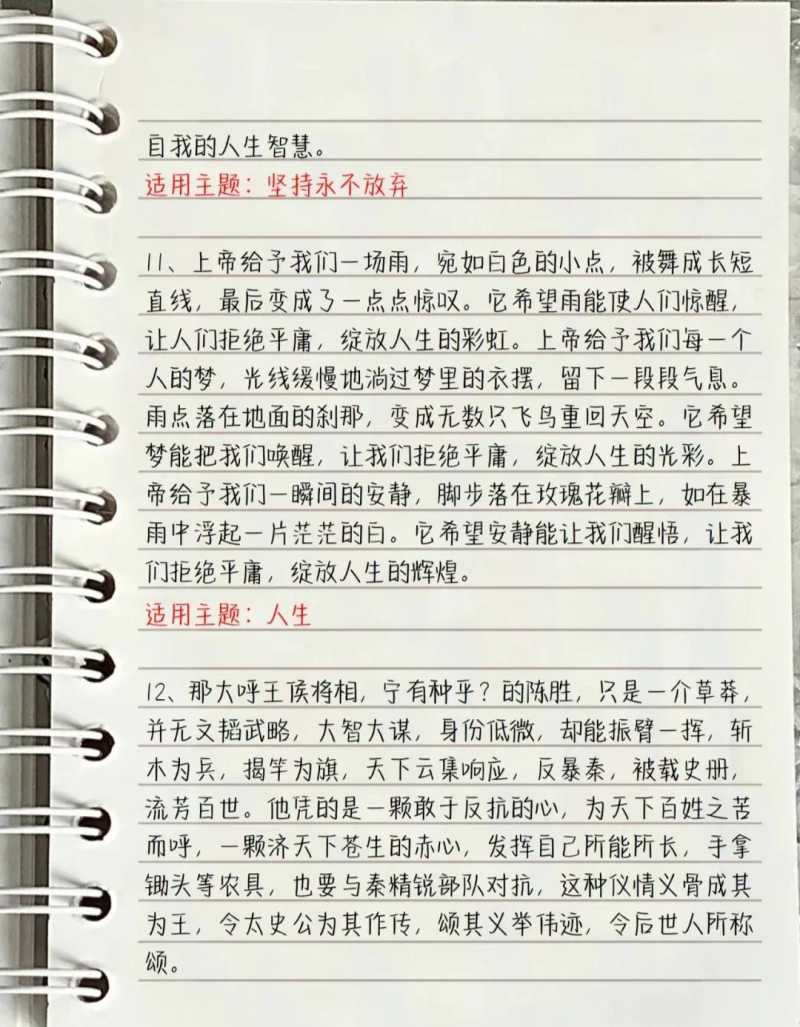 自我的人生智慧。
适用主题：坚持永不放弃
11、上帝给予我们一场雨，宛如白色的小点，被舞成长短
直线，最后变成了一点点惊叹。它希望雨能使人们惊醒，
让人们拒绝平庸，绽放人生的彩虹。上帝给予我们每一个
人的梦，光线缓慢地淌过梦里的衣摆，留下一段段气息。
雨点落在地面的刹那，变成无数只飞鸟重回天空。它希望
梦能把我们唤醒，让我们拒绝平庸，绽放人生的光彩。上
帝给予我们一瞬间的安静，脚步落在玫瑰花瓣上，如在暴
雨中浮起一片茫茫的白。它希望安静能让我们醒悟，让我
们拒绝平庸，绽放人生的辉煌。
适用主题：人生
12、那大呼王侯将相，宁有种乎？的陈胜，只是一介草莽，
并无文韬武略，大智大谋，身份低微，却能振臂一挥，斩
木为兵，揭竿为旗，天下云集响应，反暴秦，被载史册，
流芳百世。他凭的是一颗敢于反抗的心，为天下百姓之苦
而呼，一颗济天下苍生的赤心，发挥自己所能所长，手拿
锄头等农具，也要与秦精锐部队对抗，这种仪情义骨成其
为王，令太史公为其作传，颂其义举伟迹，令后世人所称
颂。